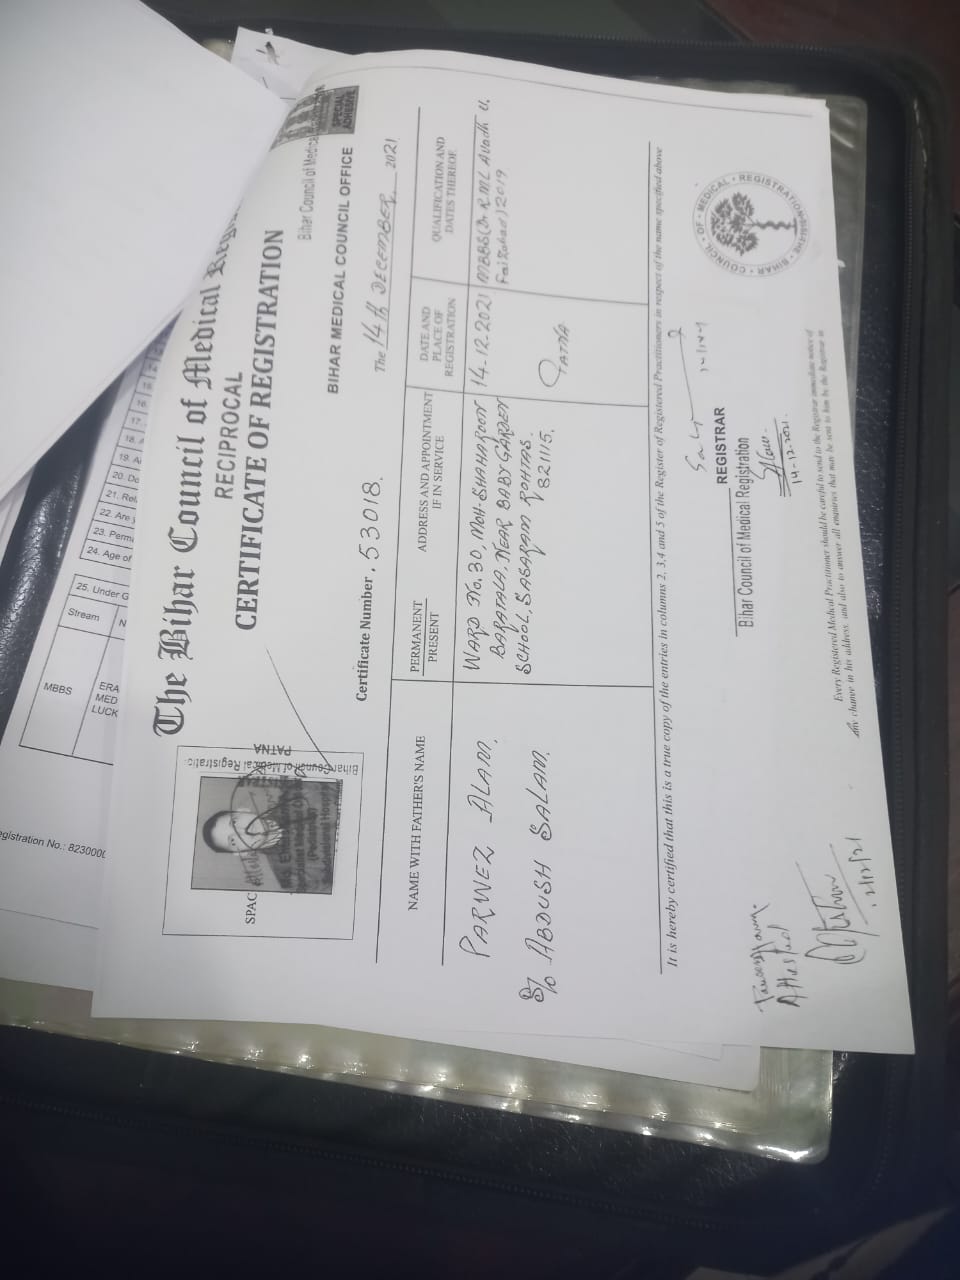 gistration No.: 823000
MBBS
Stream
ERA
MED
LUCK
25. Under G
24. Age of
23. Perm
22. Are
21. Rel
20. Do
19. A
18.
17.
16.
The Bihar Council of Medical Reg
RECIPROCAL
CERTIFICATE OF REGISTRATION
SPAC
Bihar Council of Medical Registratio
PATNA
Specialist Medical
(Pediatrics)
Subdivisional Hospital
Bihar Council of Medical
SPECIAL
ADHESIVE
BIHAR MEDICAL COUNCIL OFFICE
Certificate Number . 53018.
The 14th DECEMBER, 2021
NAME WITH FATHER'S NAME
PERMANENT
PRESENT
ADDRESS AND APPOINTMENT
IF IN SERVICE
DATE AND
PLACE OF
REGISTRATION
QUALIFICATION AND
DATES THEREOF.
PARWEZ ALAM.
S/o ABDUSH SALAM.
WARD No. 30, MOH-SHAHAROON
BARATALA, NEAR BABY GARDEN
SCHOOL, SASARAM ROHTAS.
821115.
14-12-2021
PATNA
MBBS (Dr R.M.L Avadh U.
Faizabad) 2019
It is hereby certified that this is a true copy of the entries in columns 2, 3,4 and 5 of the Register of Registered Practitioners in respect of the name specified above
REGISTRAR
Bihar Council of Medical Registration
14-12-2021
THE BIHAR COUNCIL OF MEDICAL REGISTRATION
Attested
Every Registered Medical Practitioner should be careful to send to the Registrar immediate notice of
any change in his address, and also to answer all enquiries that may be sent to him by the Registrar in